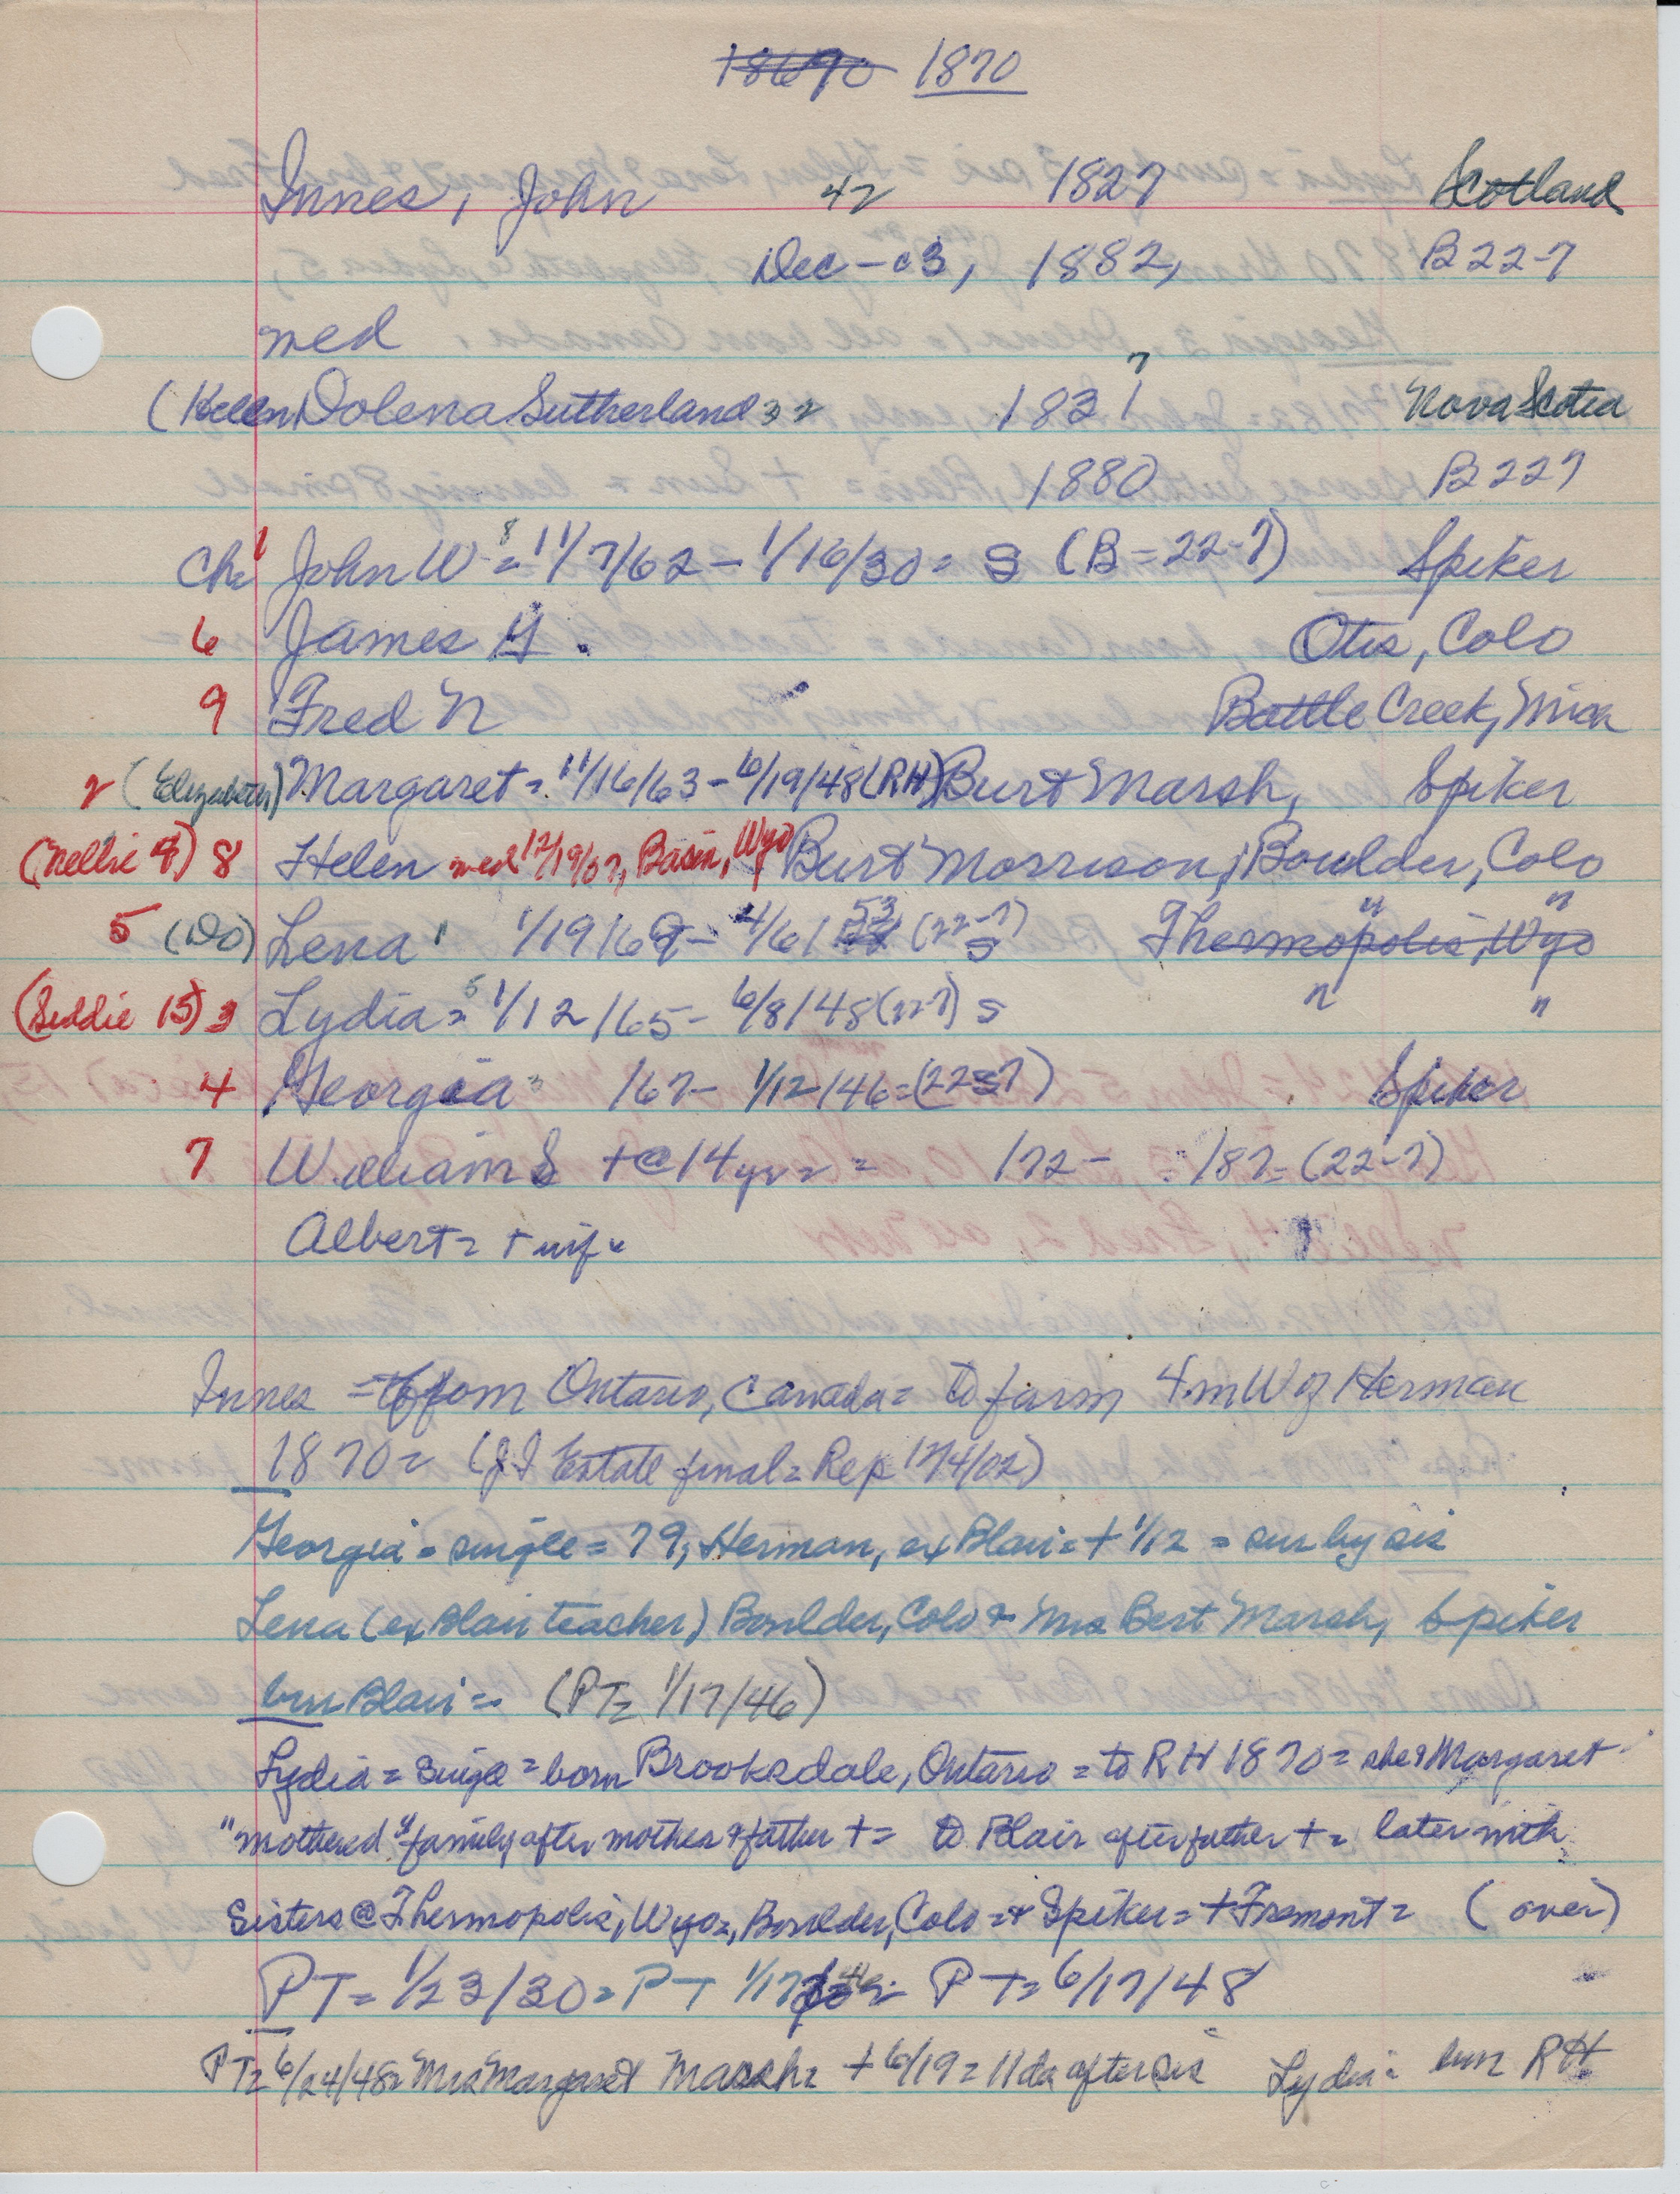 18690 1870
Innes, John 42 1827 Scotland
Dec - 03, 1882, B 22-7
med
(Helen) Dolena Sutherland 32 1831 7 Nova Scotia
1880 B 227
Ch 1 John W = 11/7/62 - 1/16/30 = S (B = 22-7) Spiker
6 James G. Otis, Colo
9 Fred N Battle Creek, Mich
2 (Elizabeth) Margaret = 11/16/63 - 6/19/48 (RH) Burt Marsh, Spiker
(Nellie 4) 8 Helen med 12/19/07, Basin, Wyo Burt Morrison, Boulder, Colo
5 (Do) Lena 1/19/69 - 4/6/53 (22-7) S Thermopolis, Wyo " "
(Siddie 15) 3 Lydia = 1/12/65 - 6/8/48 (22-7) S " "
4 Georgia /67 - 1/12/46 = (2257) Spiker
7 William S + @ 14 yr = = /72 - /87 = (22-7)
Albert = + inf
Innes = from Ontario, Canada = to farm 4 m W of Herman
1870 = (JI Estate final = Rep 12/4/02)
Georgia = single = 79, Herman, ex Blair = + 1/12 = sur by sis
Lena (ex Blair teacher) Boulder, Colo & Mrs Bert Marsh, Spiker
bur Blair = (PT = 1/17/46)
Lydia = single = born Brooksdale, Ontario = to RH 1870 = she & Margaret
"mothered" family after mother & father + = to Blair after father + = later with
Sisters @ Thermopolis, Wyo =, Boulder, Colo = & Spiker = + Fremont = (over)
PT = 1/23/30 = PT 1/17/46 = PT = 6/17/48
PT = 6/24/48 = Mrs Margaret Marsh = + 6/19 = 11 da after sis Lydia = bur RH